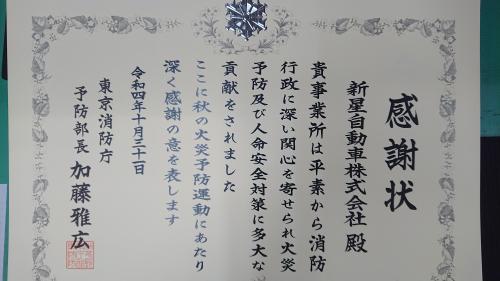 感謝状
新星自動車株式会社 殿
貴事業所は平素から消防
行政に深い関心を寄せられ火災
予防及び人命安全対策に多大な
貢献をされました
ここに秋の火災予防運動にあたり
深く感謝の意を表します
令和四年十月三十一日
東京消防庁
予防部長 加藤雅広